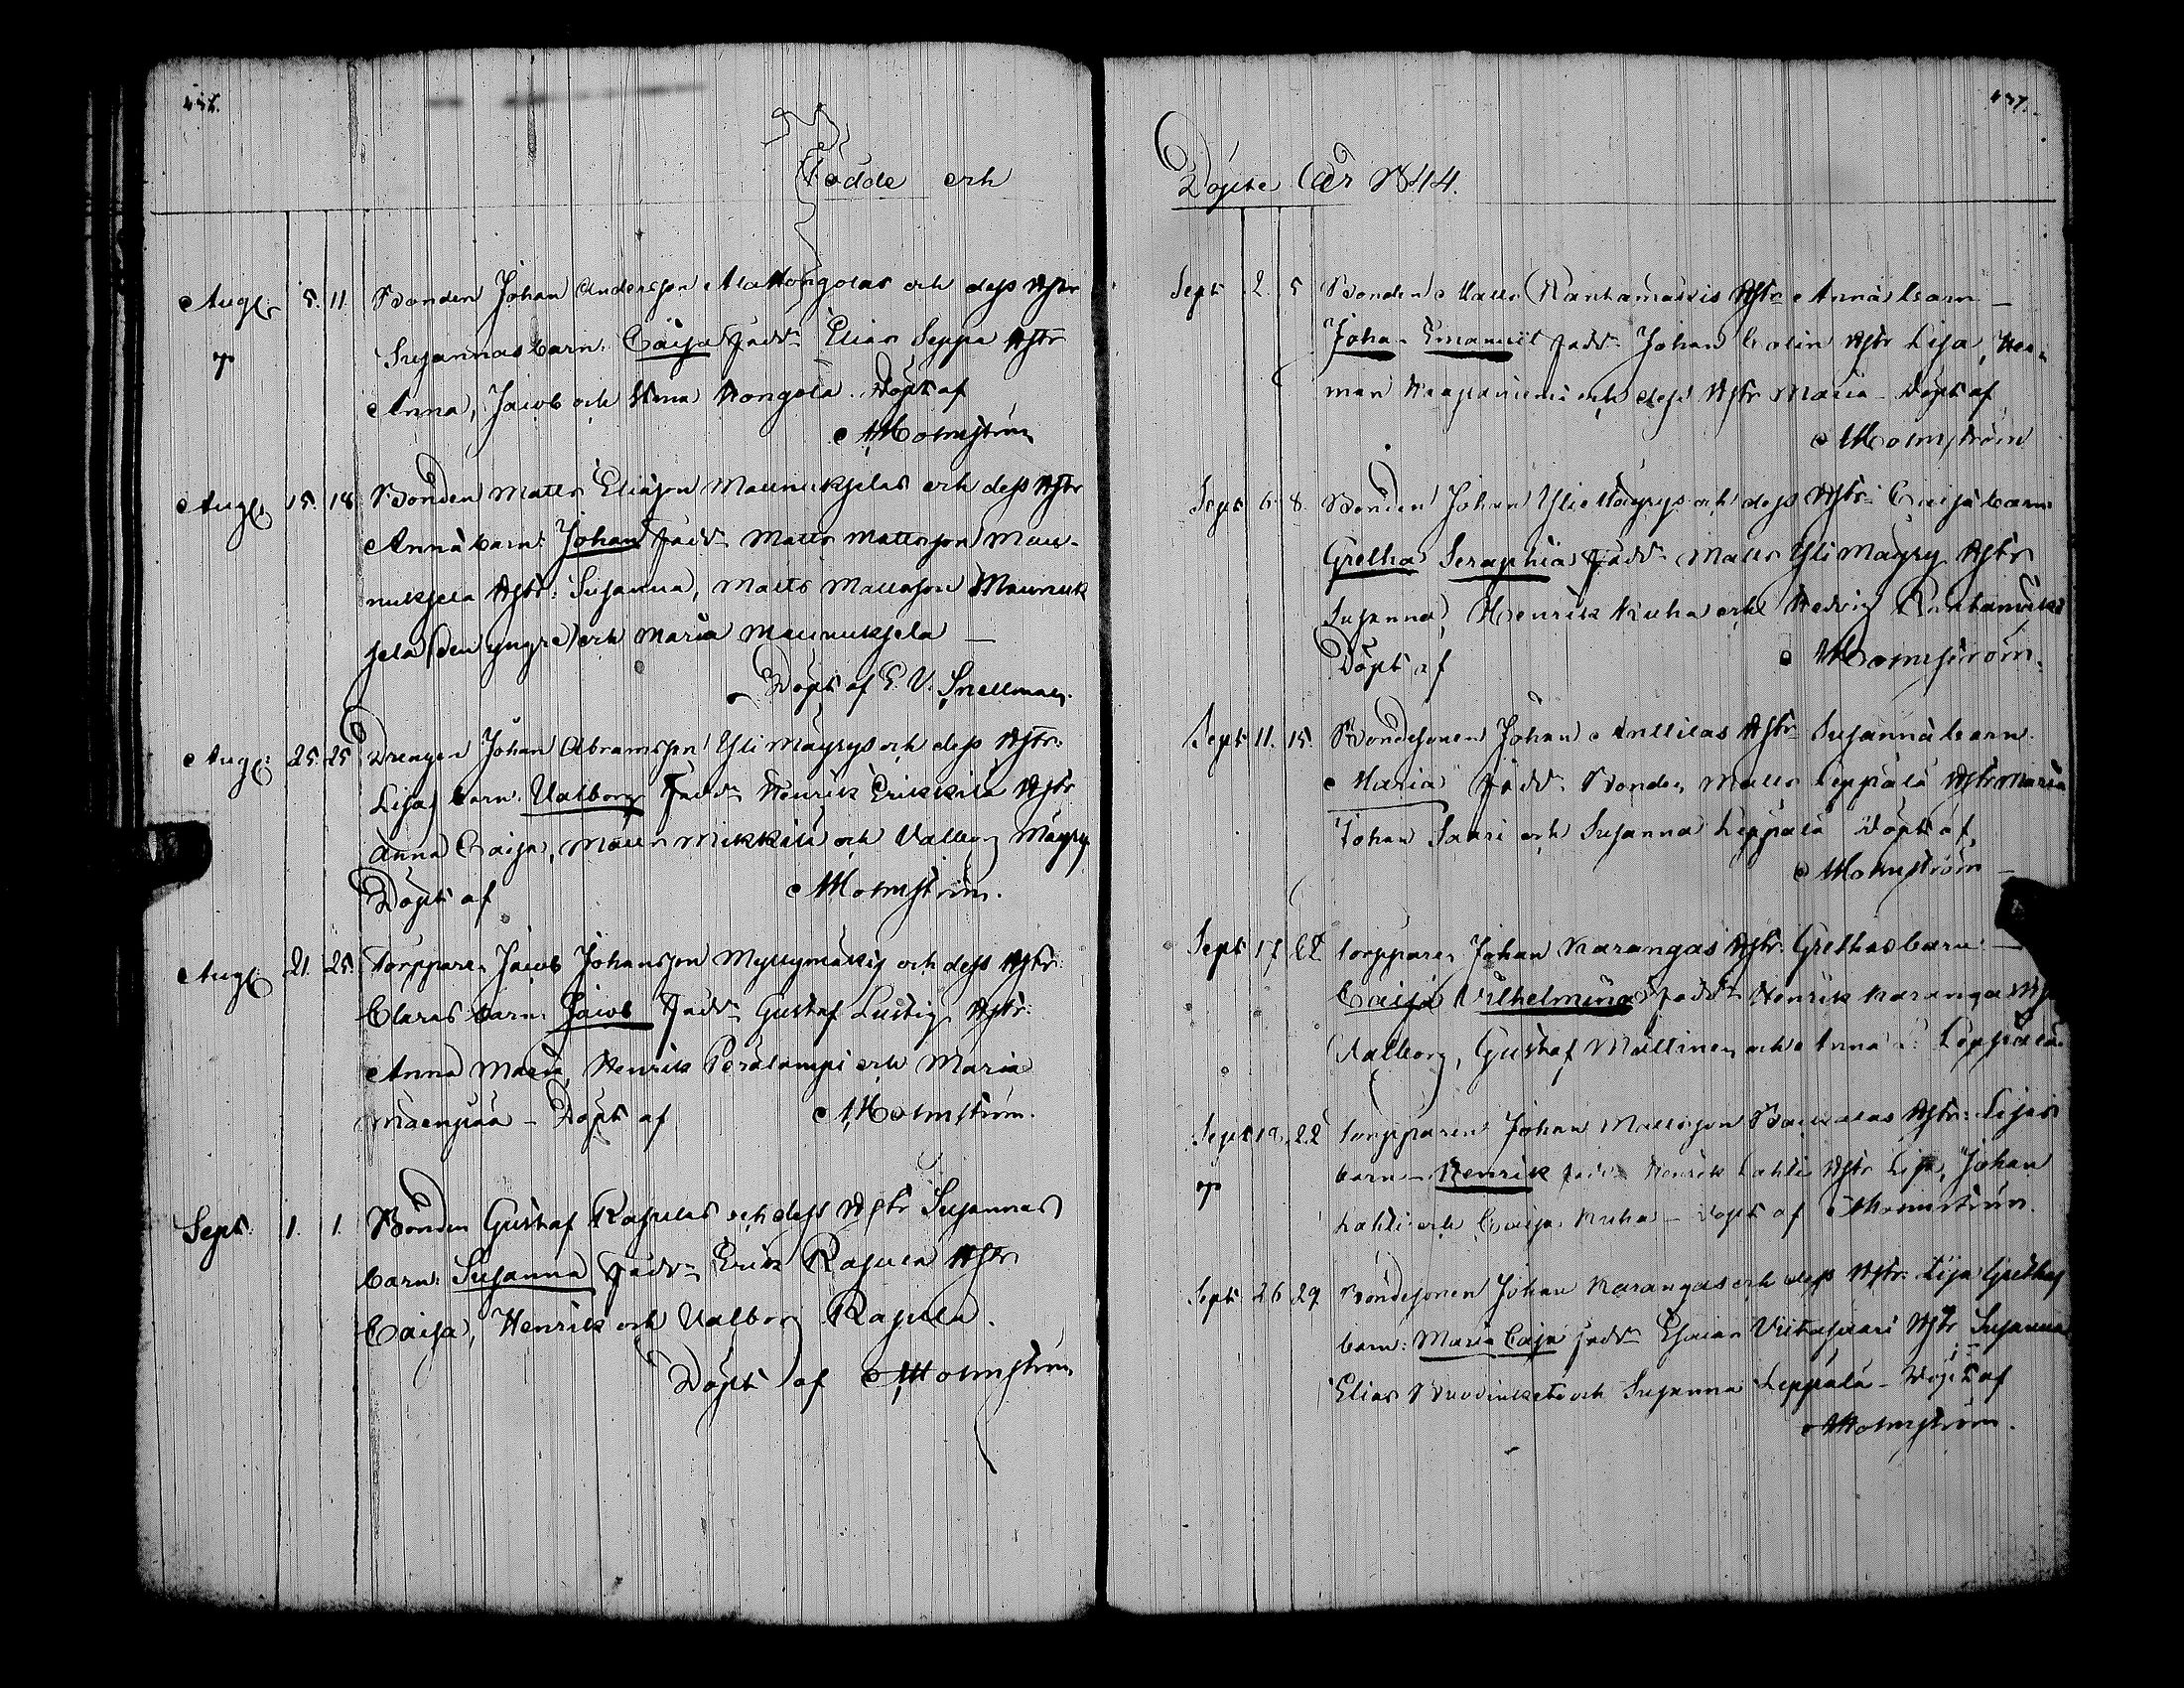 Födde och
Augs. 5. 11. Bonden Johan Andersson AlaKongolas och dess Hstr
Susannas barn: Caisa Fadd: Elias Seppä Hstr
Anna, Jacob och Stina Kongola. Döpt af
A. Holmström
Augs. 15. 18 Bonden Matts Eliasson Maunukselas och dess Hstr
Annas barn: Johan Fadd: Matts Mattsson Mau-
nuksela Hstr: Susanna, Matts Mattsson Maunuk
sela (den yngre) och Maria Maunuksela —
Döpt af E. V. Snellman.
Augs: 25. 25 Drengen Johan Abramsson Yli Mäyrys och dess Hstr:
Lisas barn: Valborg Fadd: Henrik Erikkilä Hstr
Anna Caisa, Matts Mikkilä och Valborg Mäyry
Döpt af A. Holmström.
Augs. 21. 25. Torpparen Jacob Johansson Myllymäkis och dess Hstr:
Claras barn: Jacob Fadd: Gustaf Lustig Hstr:
Anna Maria, Henrik Perälampi och Maria
Maenpää – Döpt af A. Holmström.
Sept. 1. 1. Bonden Gustaf Rasulas och dess Hstr Susannas
barn: Susanna Fadd: Erik Rasula Hstr
Caisa, Henrik och Valborg Rasula.
Döpt af A. Holmström
437.
Döpte år 1844.
Sept 2. 5 Bonden Matts Rantamäkis Hstr Annas barn —
Johan Emanuel Fadd: Johan Colin Hstr Lisa, Her-
man Haapaniemi och dess Hstr Maria – Döpt af
A. Holmström
Sept 6. 8. Bonden Johan YliMäyrys och dess Hstr: Caisas barn:
Gretha Seraphia Fadd: Matts Yli Mäyry Hstr
Susanna, Henrik Kuha och Hedvig Rantamäki
Döpt af A. Holmström.
Sept 11. 15. Bondesonen Johan Anttilas Hstr Susannas barn
Maria Fadd: Bonden Matts Leppälä Hstr Maria
Johan Saari och Susanna Leppälä Döpt af
A. Holmström —
Sept 17 22 Torpparen Johan Karangas Hstr: Grethas barn: —
Caisa Vilhelmina Fadd: Henrik Karanga Hstr
Valborg, Gustaf Mattinen och Anna Leppälä
Sept 19. 22 Torpparen Johan Mattsson Hstr: Lisas
barn – Henrik Fadd: Henrik Lahti Hstr Lisa, Johan
Lahti och Caisa Kuha – Döpt af A. Holmström.
Sept 26 29 Bondesonen Johan Karangas och dess Hstr: Lisa Grethas
barn: Maria Caisa Fadd: Esaias Viitasaari Hstr Susanna
Elias och Susanna Leppälä – Döpt af
A. Holmström.